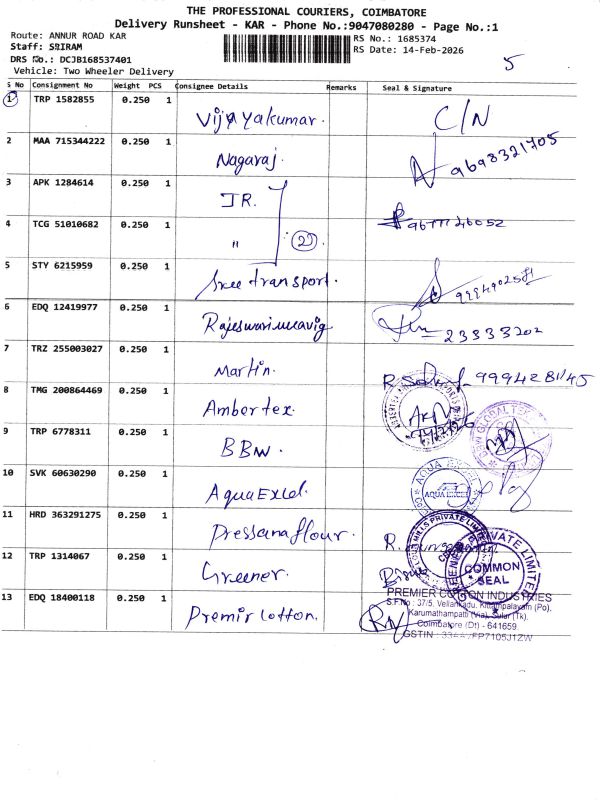 THE PROFESSIONAL COURIERS, COIMBATORE
Delivery Runsheet - KAR - Phone No.:9047080280 - Page No.:1
Route: ANNUR ROAD KAR RS No.: 1685374
Staff: SRIRAM RS Date: 14-Feb-2026
DRS No.: DCJB168537401 5
Vehicle: Two Wheeler Delivery
S No Consignment No Weight PCS Consignee Details Remarks Seal & Signature
1 TRP 1582855 0.250 1 Vijayakumar. C/N
2 MAA 715344222 0.250 1 Nagaraj. 9698321705
3 APK 1284614 0.250 1 JR.
4 TCG 51010682 0.250 1 "
5 STY 6215959 0.250 1 Sree transport.
6 EDQ 12419977 0.250 1 23333202
7 TRZ 255003027 0.250 1 Martin. 9994281145
8 TMG 200864469 0.250 1 Ambertex.
9 TRP 6778311 0.250 1
10 SVK 60630290 0.250 1 AquaExcel. AQUA EXCEL
11 HRD 363291275 0.250 1 Dressanaflour. MILLS PRIVATE LIMITED
12 TRP 1314067 0.250 1 Greener. GREENER PRIVATE LIMITED
COMMON
SEAL
13 EDQ 18400118 0.250 1 Premir Cotton. PREMIER COTTON INDUSTRIES
S.F.No : 37/5, Vellankadu, Kittampalayam (Po).
Karumathampatti (Via), Sulur (Tk).
Coimbatore (Dt) - 641659
GSTIN :